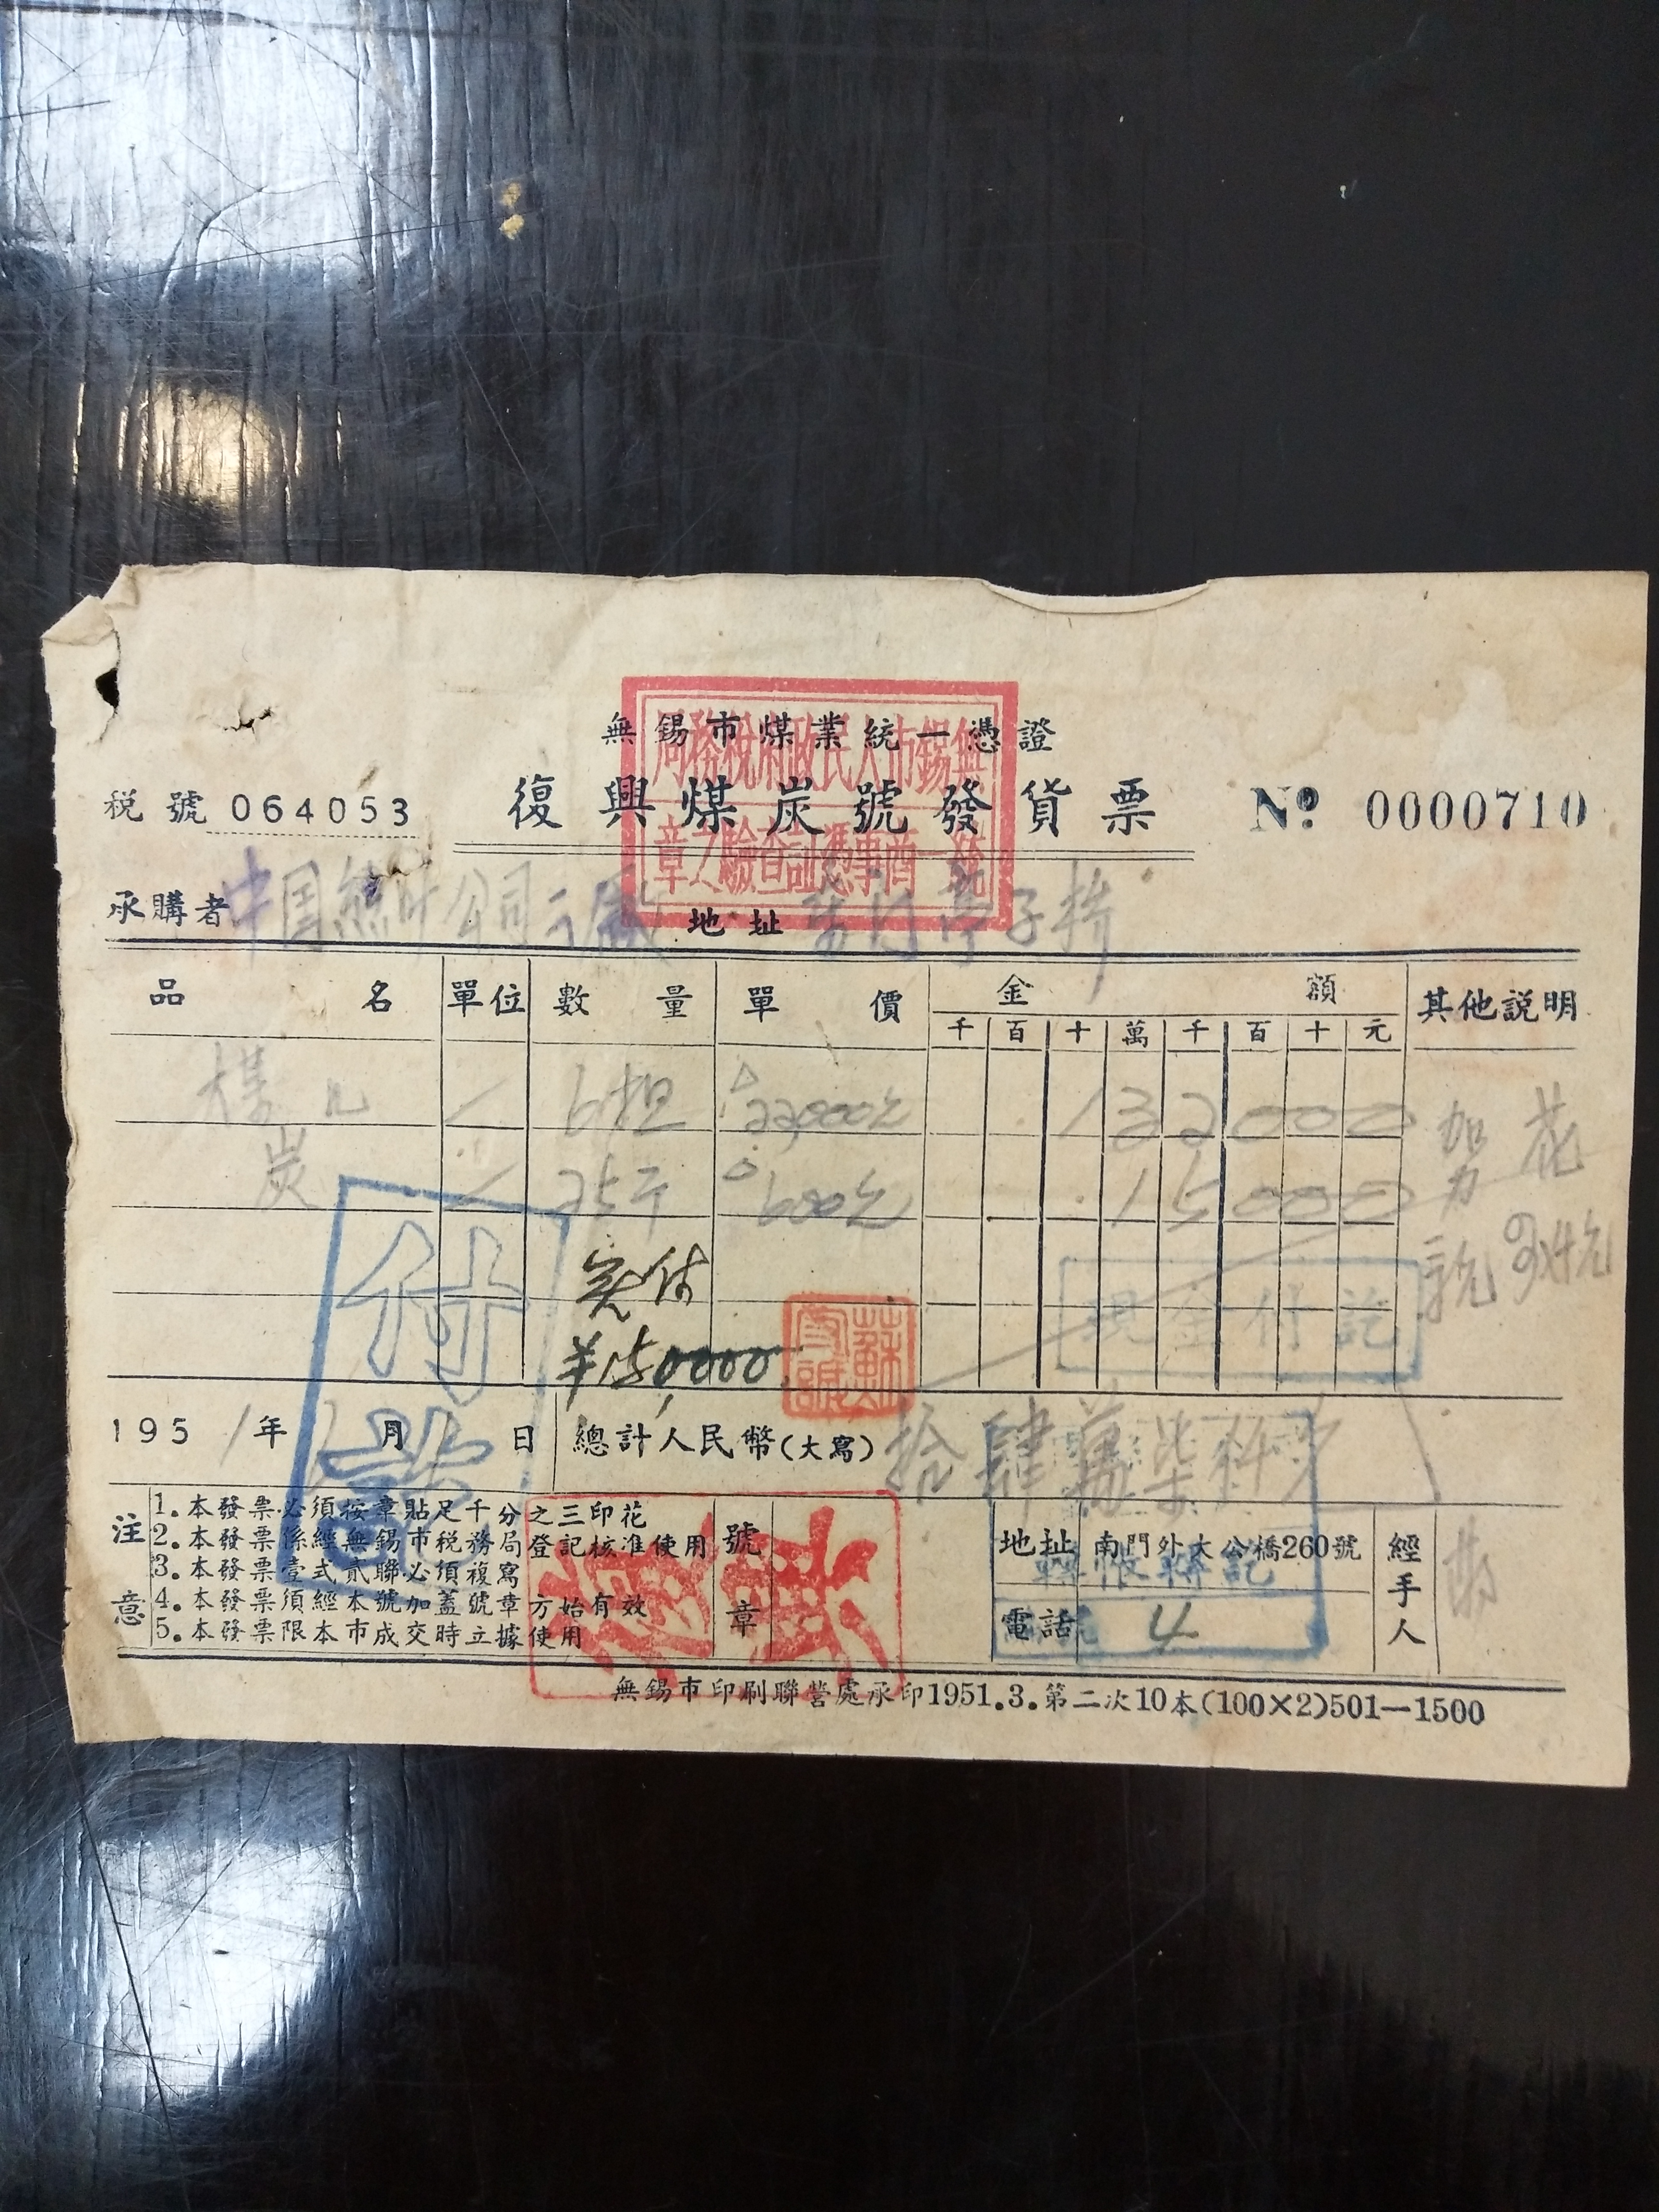 無錫市煤業統一憑證
無錫市人民政府稅務局
統一商事憑証查驗之章
稅號 064053 復興煤炭號發貨票 Nº 0000710
承購者 中国 公司 地址
品名 單位 數量 單價 金額 其他説明
千 百 十 萬 千 百 十 元
6担 22,000元 132000 加花
炭 25斤 600元 15000
实付
150,000
蘇
現金付訖
付訖
1951年 月 日 總計人民幣(大寫) 拾肆萬柒仟
注意
1. 本發票必須按章貼足千分之三印花
2. 本發票係經無錫市稅務局登記核准使用
3. 本發票壹式貳聯必須複寫
4. 本發票須經本號加蓋號章方始有效
5. 本發票限本市成交時立據使用
號章
地址 南門外大公橋260號
轉帳
電話 4
經手人
無錫市印刷聯營處承印1951.3.第二次10本(100×2)501—1500